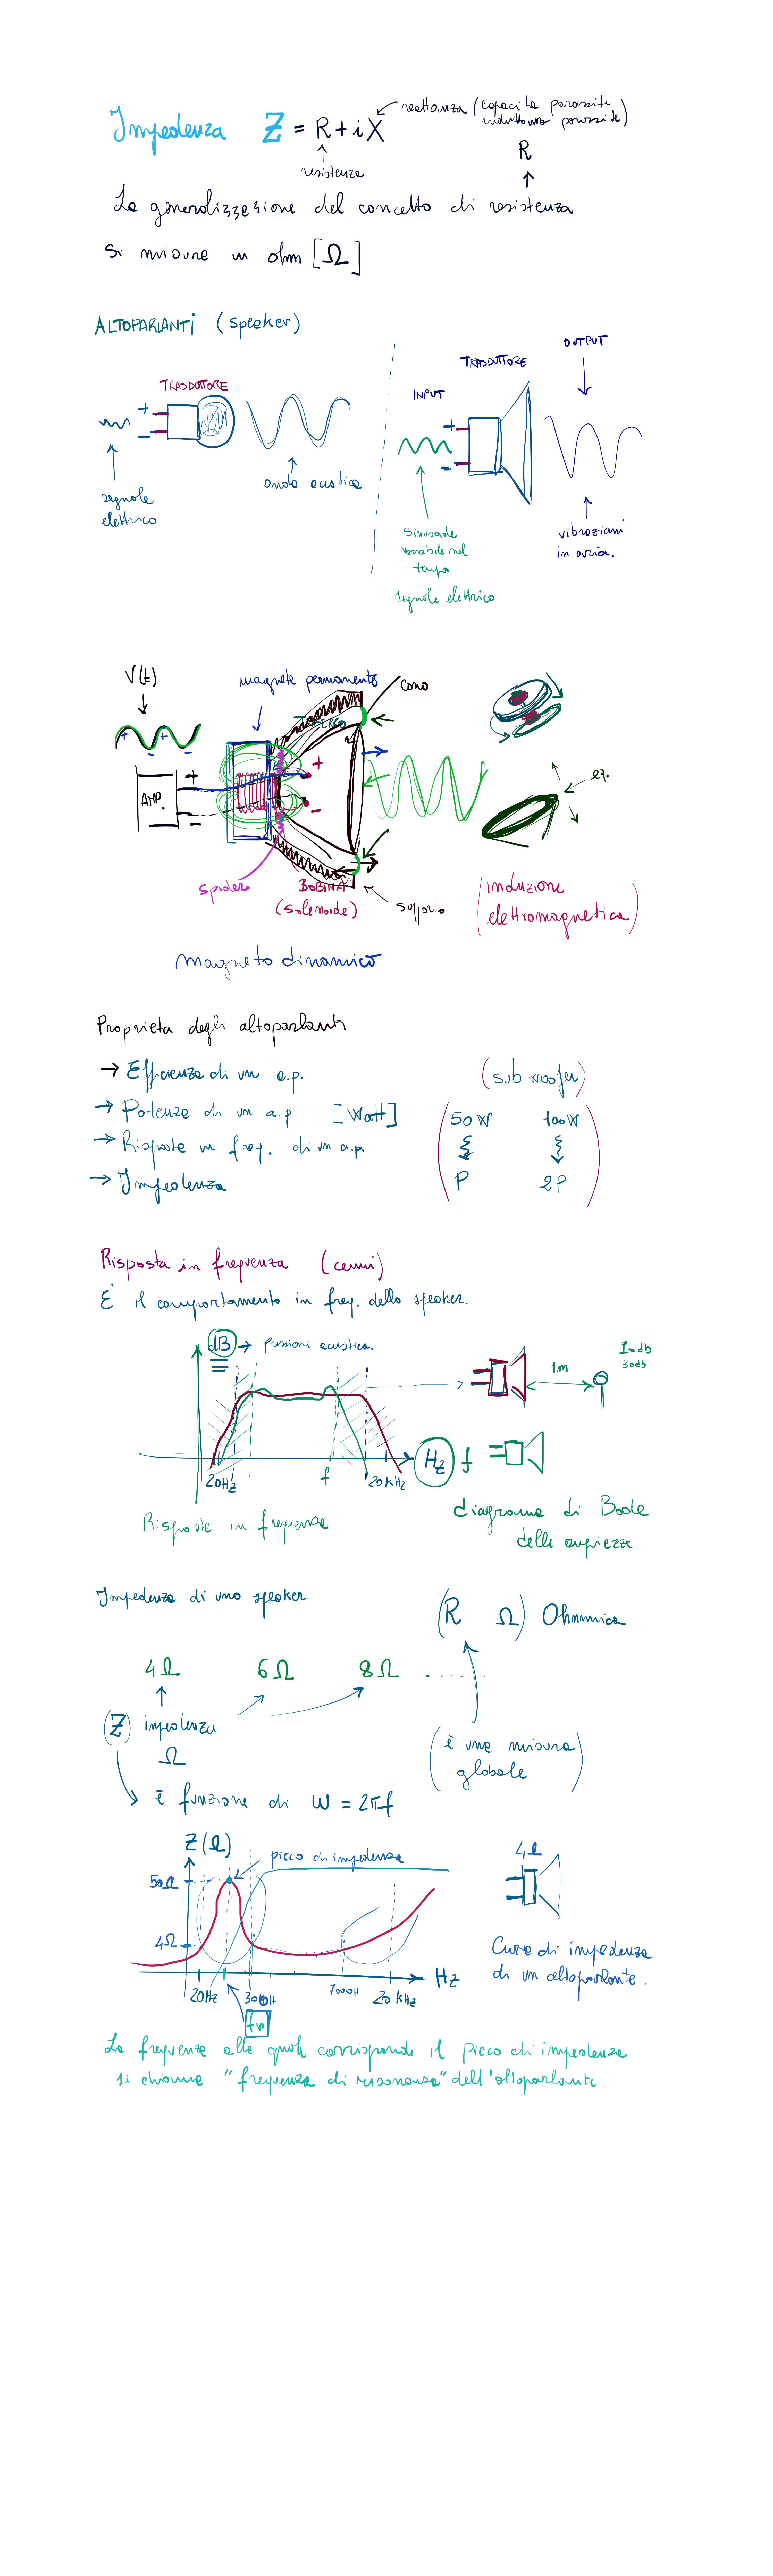 Impedenza Z = R + i X
reattanza (capacità parassite
induttanze parassite)
resistenza
R
La generalizzazione del concetto di resistenza
Si misura in ohm [Ω]
ALTOPARLANTI (speaker)
TRASDUTTORE
+
-
segnale
elettrico
onda acustica
INPUT
TRASDUTTORE
OUTPUT
+
-
Sinusoide
variabile nel
tempo
segnale elettrico
vibrazioni
in aria.
V(t)
magnete permanente
cono
+ +
- -
AMP.
+
-
+
-
spider
BOBINA
(solenoide)
supporto
(induzione
elettromagnetica)
magneto dinamico
Proprietà degli altoparlanti
→ Efficienza di un a.p.
→ Potenza di un a.p [Watt]
→ Risposta in freq. di un a.p.
→ Impedenza
(sub woofer)
50 W 100 W
P 2P
Risposta in frequenza (cenni)
E' il comportamento in freq. dello speaker.
dB → pressione acustica.
1m
30db
20Hz f 20kHz Hz f
Risposta in frequenza
diagramma di Bode
delle ampiezze
Impedenza di uno speaker
(R Ω) Ohmmica
4Ω 6Ω 8Ω .....
(Z) impedenza
Ω
(è una misura
globale)
è funzione di ω = 2πf
Z(Ω)
picco di impedenza
50Ω
4Ω
20Hz 20 kHz Hz
4Ω
Curva di impedenza
di un altoparlante.
La frequenza alla quale corrisponde il picco di impedenza
si chiama "frequenza di risonanza" dell'altoparlante.